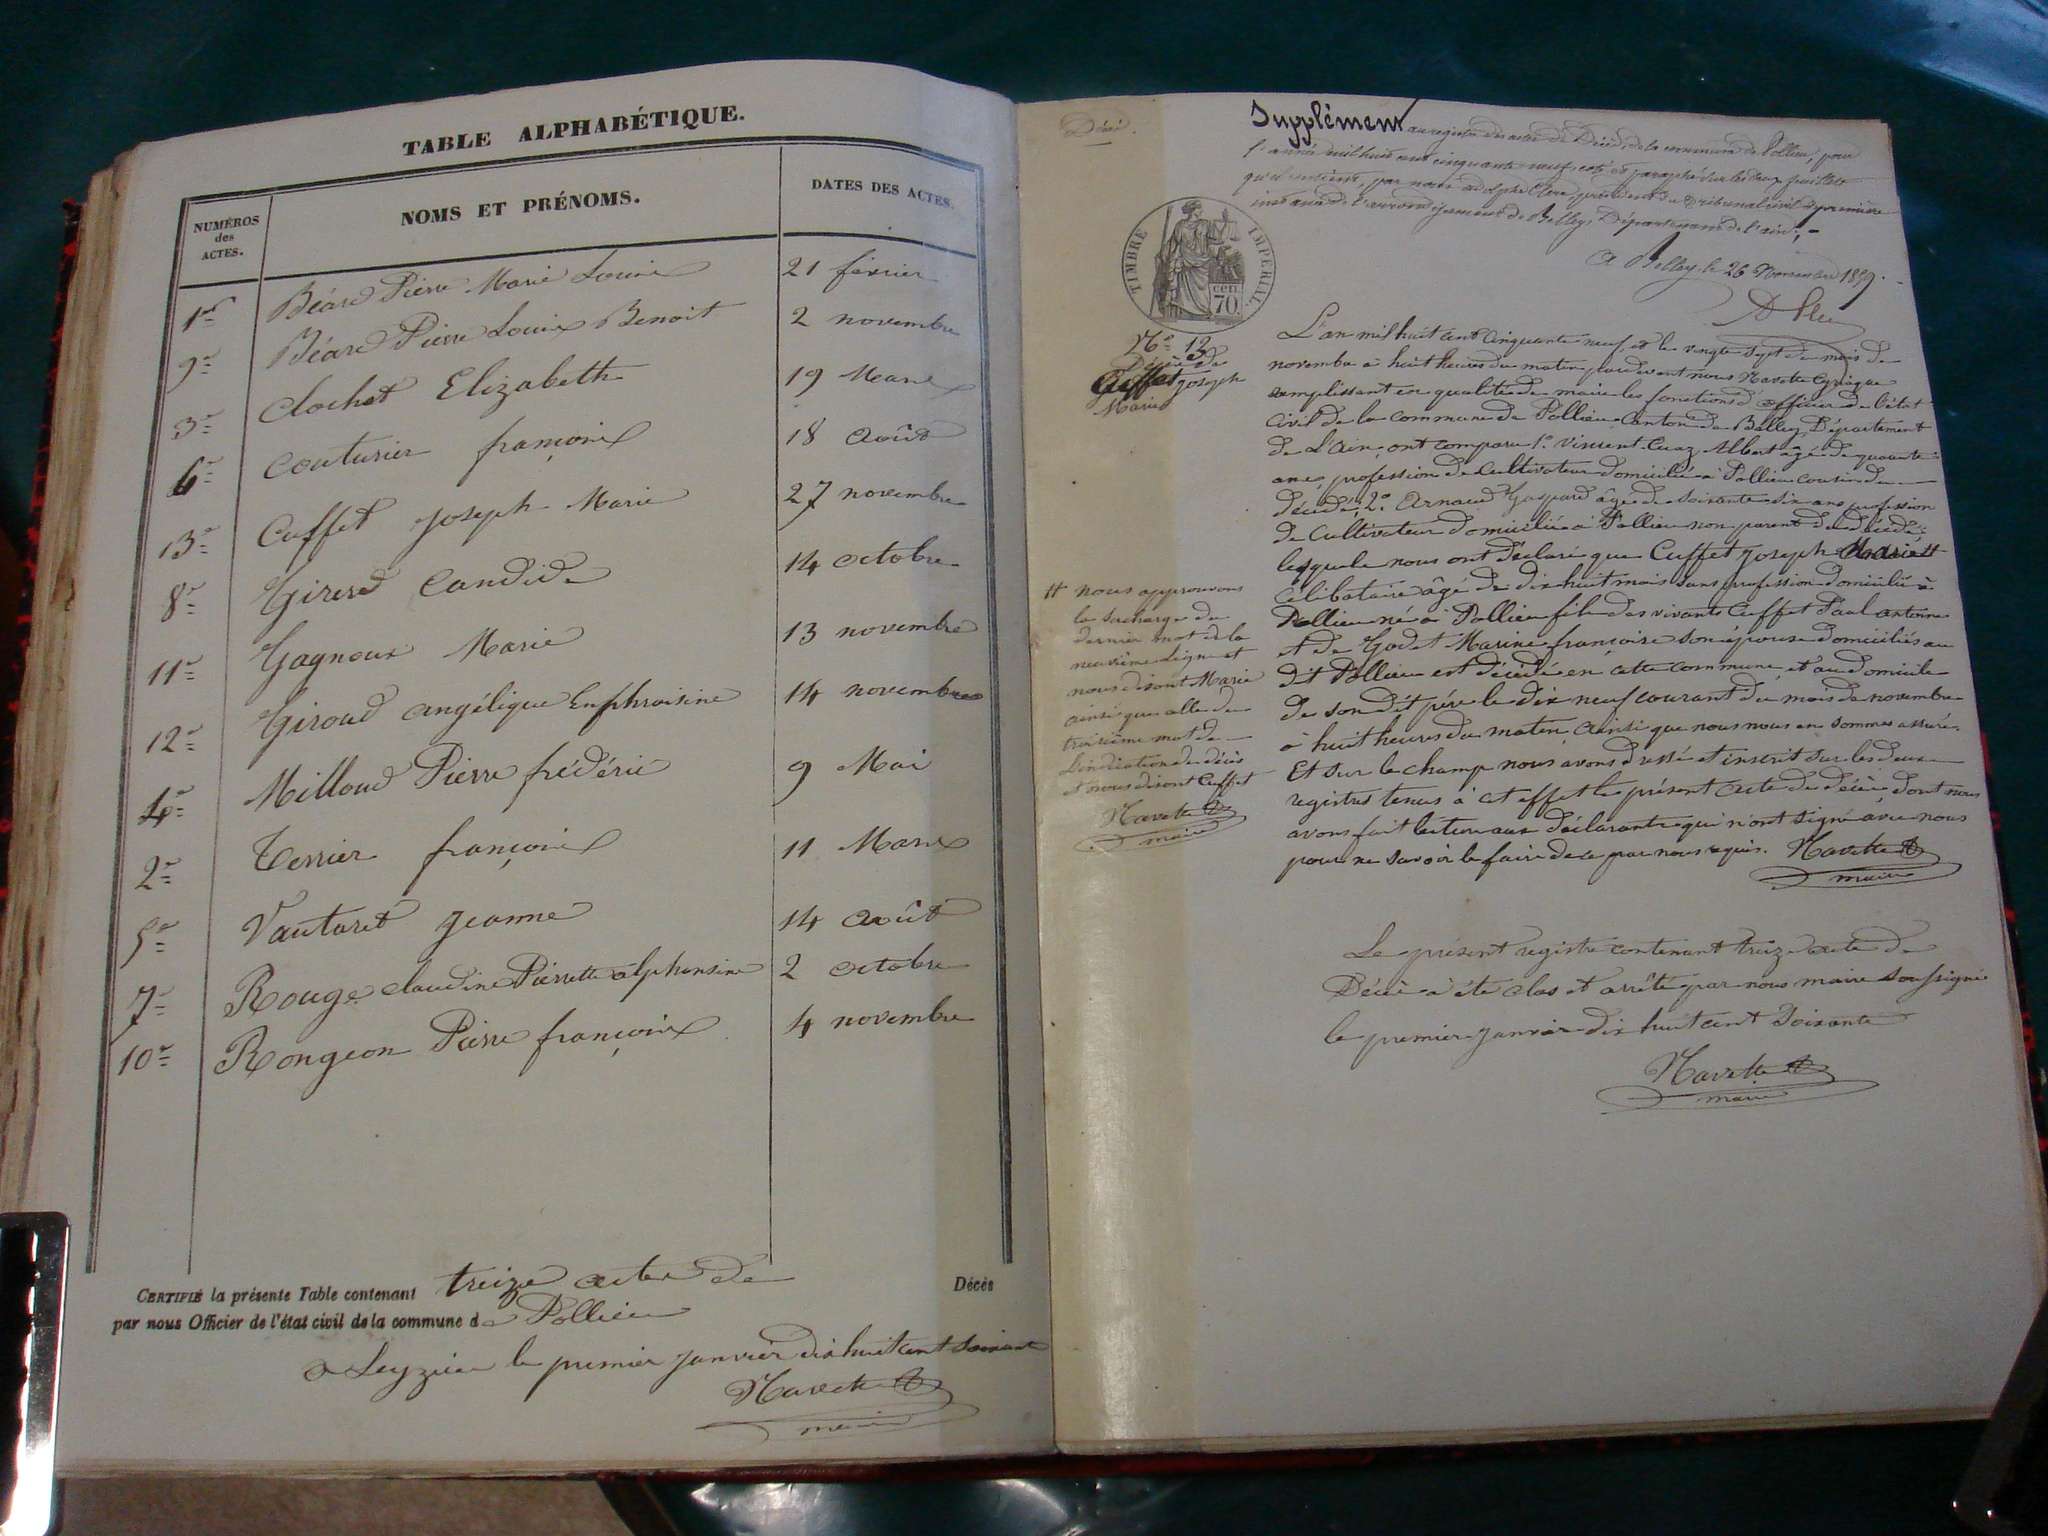 TABLE ALPHABÉTIQUE.
NUMÉROS des ACTES. NOMS ET PRÉNOMS. DATES DES ACTES.
1er Béard Pierre Marie Louis 21 février
9e Béard Pierre Louis Benoit 2 novembre
3e Clochet Elizabeth 19 Mars
6e Couturier françois 18 Août
13e Cuffet Joseph Marie 27 novembre
8e Girerd Candide 14 octobre
11e Gagneux Marie 13 novembre
12e Giroud angélique Euphroisine 14 novembre
4e Milloud Pierre frédéric 9 Mai
2e Terrier françois 11 Mars
5e Vautaret Jeanne 14 août
7e Rouge claudine Pierrette alphonsine 2 octobre
10e Rongeon Pierre françois 4 novembre
CERTIFIÉ la présente Table contenant treize actes de Décès
par nous Officier de l'état civil de la commune de Pollieu
a Leyzieu le premier Janvier dix huit cent soixante
Navette
maire
Décès.
Supplément au registre des actes de Décès de la commune de Pollieu, pour
l'année mil huit cent cinquante neuf, coté et paraphé sur les deux feuillets
qu'il contient, par nous Adolphe Clerc, président du Tribunal civil de première
instance de l'arrondissement de Belley, Département de l'ain;
A Belley le 26 Novembre 1859.
TIMBRE IMPERIAL
cen. 70.
No 13
Décès de
Cuffet Joseph
Marie
L'an mil huit cent cinquante neuf, et le vingt sept du mois de
novembre à huit heures du matin pardevant nous Navette
remplissant en qualité de maire les fonctions d'officier de l'état
civil de la commune de Pollieu Canton de Belley, Département
de L'ain, ont comparu 1º. Vincent Cuaz Albert âgé de quarante
ans, profession de cultivateur domicilié à Pollieu cousin du
décédé, 2º. Arnaud Gaspard âgé de soixante six ans profession
de cultivateur domicilié à Pollieu non parent du décédé;
lesquels nous ont déclaré que Cuffet Joseph Marie #
célibataire âgé de dix huit mois sans profession domicilié à
Pollieu né à Pollieu fils des vivants Cuffet Paul antoine
et de Godet Marine françoise son épouse domiciliés au
dit Pollieu est décédé en cette commune, et au domicile
de son dit père le dix neuf courant du mois de novembre
à huit heures du matin, ainsi que nous nous en sommes assuré.
Et sur le champ nous avons dressé et inscrit sur les deux
registres tenus à cet effet le présent acte de décès, dont nous
avons fait lecture aux déclarants qui n'ont signé avec nous
pour ne savoir le faire de ce par nous requis. Navette
maire
# nous approuvons
la surcharge du
dernier mot de la
neuvième ligne et
nous disons Marie
ainsi que celle du
troisième mot de
L'indication du décès
et nous disons Cuffet
Navette
maire
Le présent registre contenant treize acte de
Décès à été clos et arrêté par nous maire soussigné
le premier Janvier dix huit cent soixante
Navette
maire